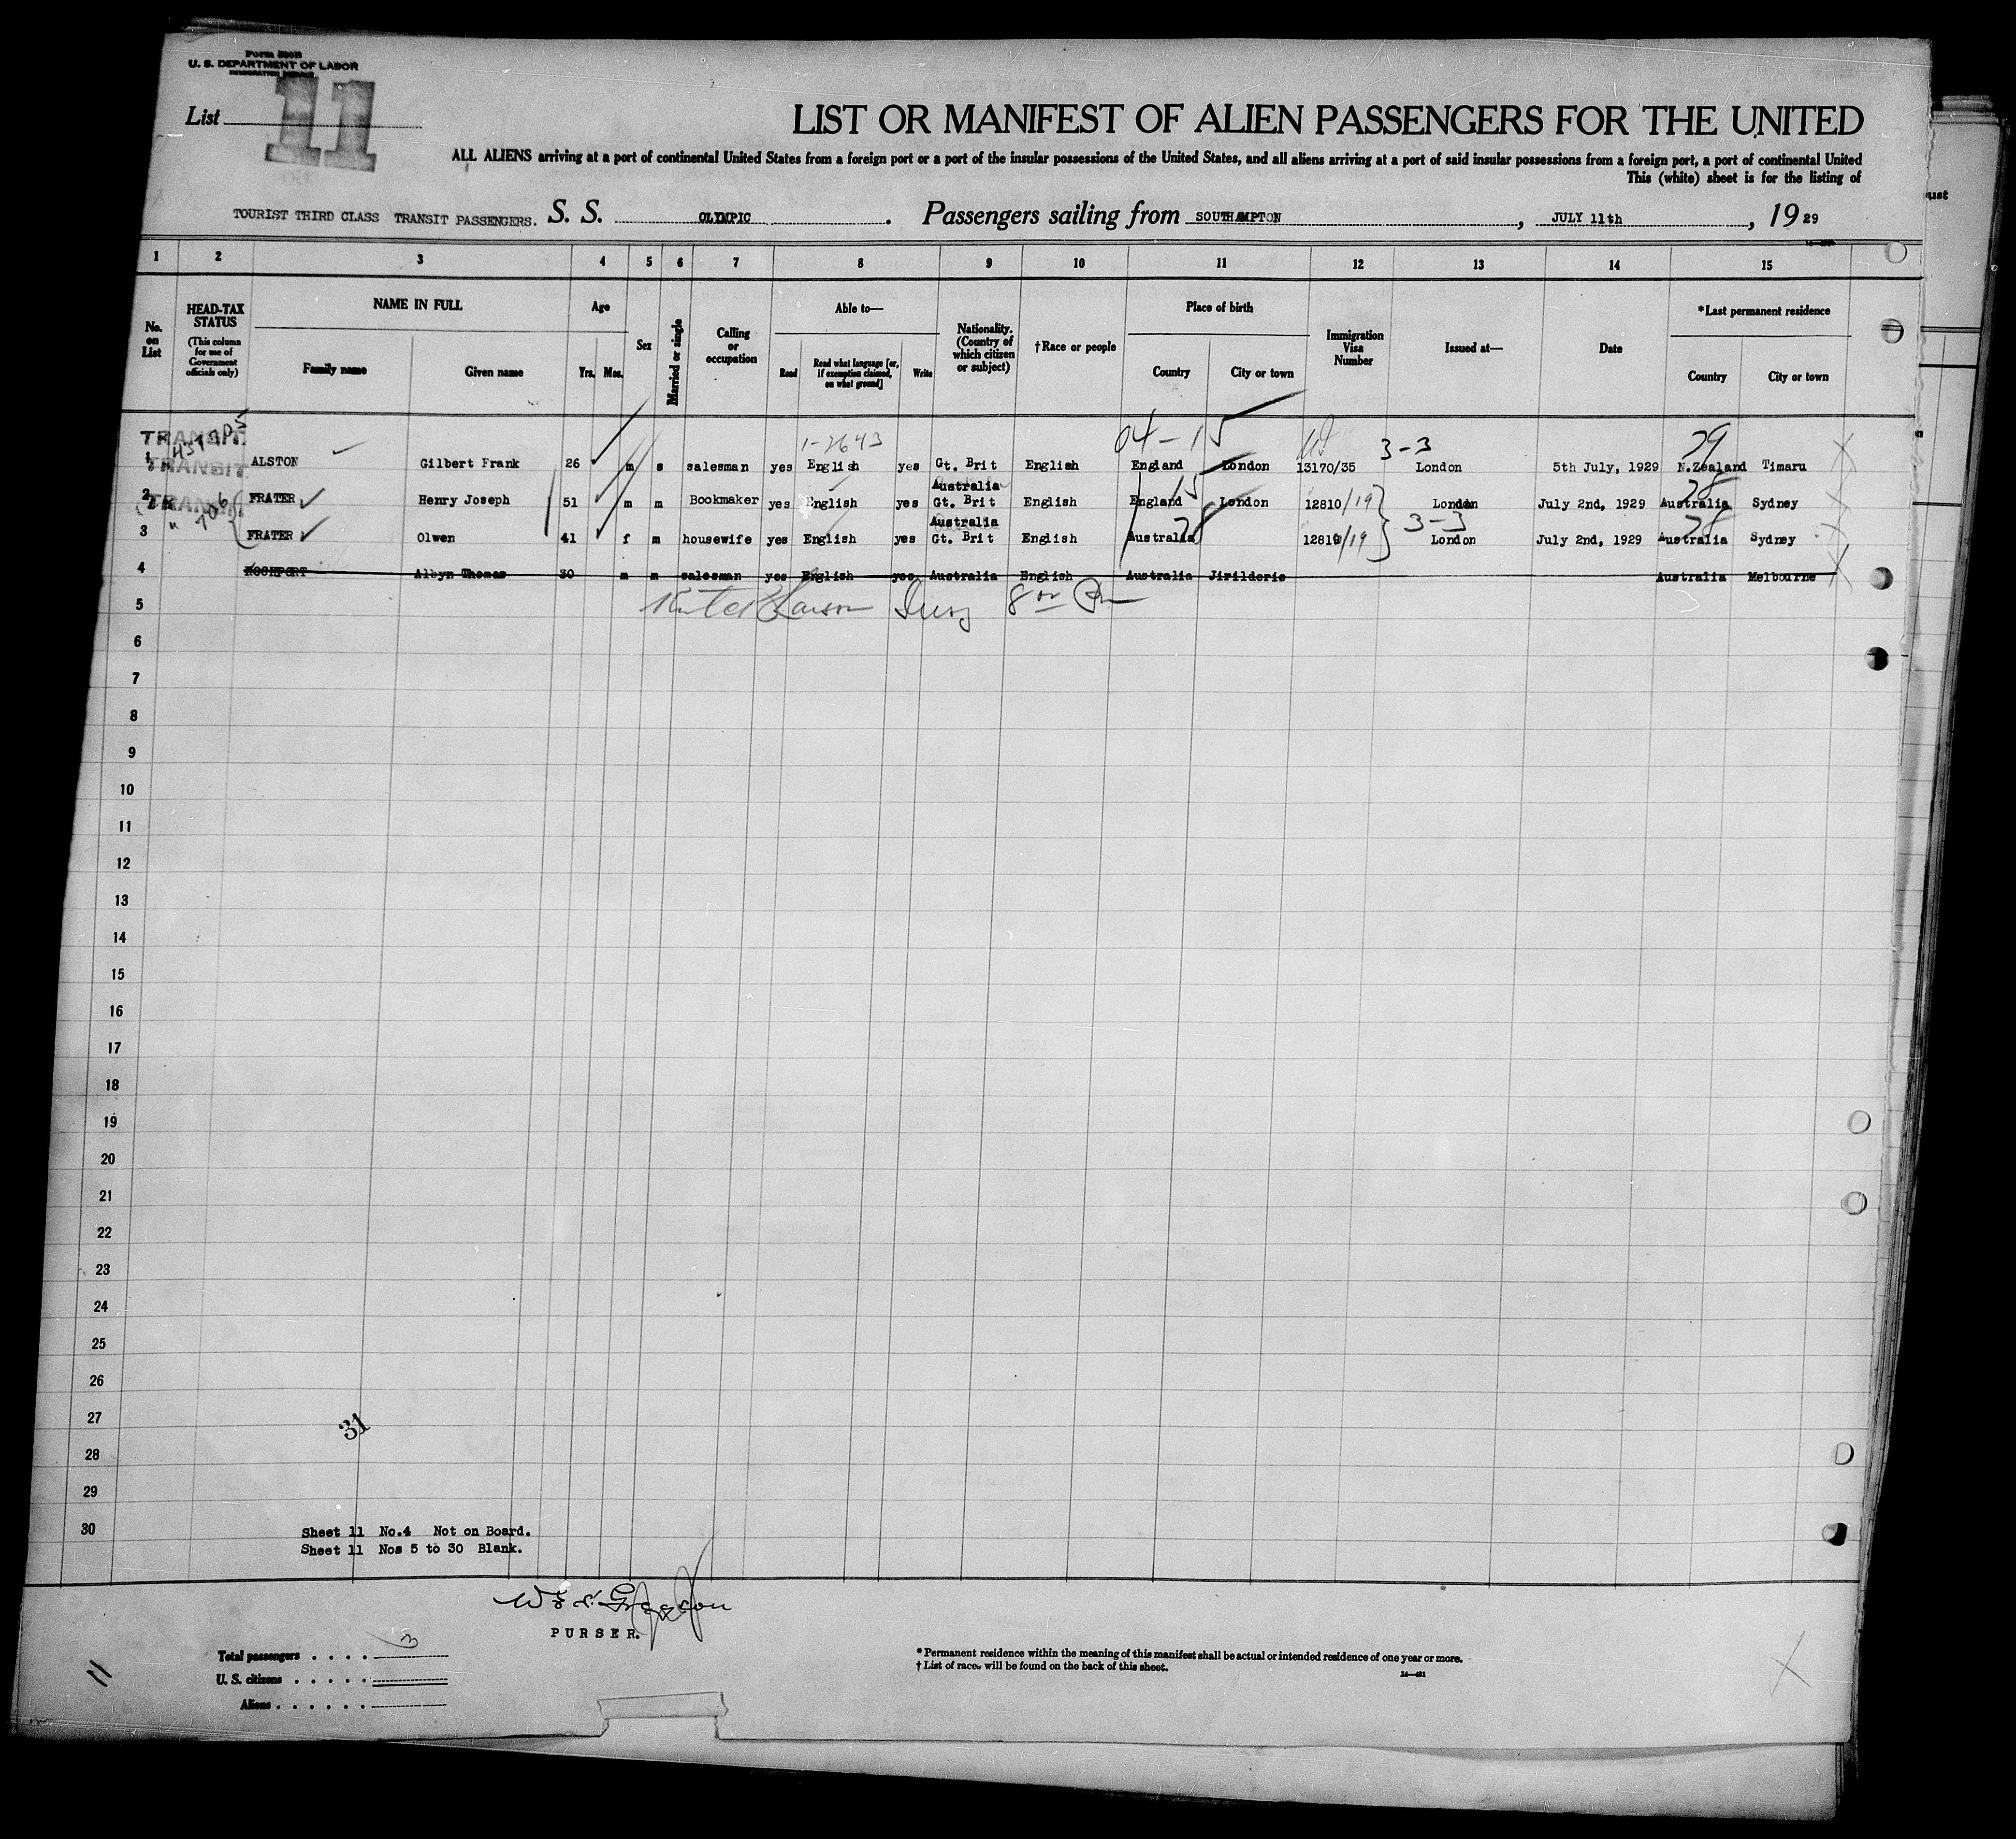 Form 500B
U. S. DEPARTMENT OF LABOR
IMMIGRATION SERVICE
List 11
LIST OR MANIFEST OF ALIEN PASSENGERS FOR THE UNITED
ALL ALIENS arriving at a port of continental United States from a foreign port or a port of the insular possessions of the United States, and all aliens arriving at a port of said insular possessions from a foreign port, a port of continental United
This (white) sheet is for the listing of
TOURIST THIRD CLASS TRANSIT PASSENGERS. S. S. OLYMPIC. Passengers sailing from SOUTHAMPTON, JULY 11th, 1929
1 2 3 4 5 6 7 8 9 10 11 12 13 14 15
No. on List
HEAD-TAX STATUS (This column for use of Government officials only)
NAME IN FULL Family name Given name
Age Yrs. Mos.
Sex
Married or single
Calling or occupation
Able to— Read Read what language [or, if exemption claimed, on what ground] Write
Nationality. (Country of which citizen or subject)
†Race or people
Place of birth Country City or town
Immigration Visa Number
Issued at—
Date
*Last permanent residence Country City or town
TRANSIT 1-2643 04-15 3-3 29
1 TRANSIT ALSTON Gilbert Frank 26 m s salesman yes English yes Gt. Brit English England London 13170/35 London 5th July, 1929 N.Zealand Timaru
Australia 15 28
2 TRANSIT FRATER Henry Joseph 51 m m Bookmaker yes English yes Gt. Brit English England London 12810/19 London July 2nd, 1929 Australia Sydney
706 Australia 28 3-3 28
3 FRATER Olwen 41 f m housewife yes English yes Gt. Brit English Australia 12819/19 London July 2nd, 1929 Australia Sydney
4 ROCHFORT Albyn Thomas 30 m m salesman yes English yes Australia English Australia Jirilderie Australia Melbourne
5
6
7
8
9
10
11
12
13
14
15
16
17
18
19
20
21
22
23
24
25
26
27
31
28
29
30
Sheet 11 No.4 Not on Board.
Sheet 11 Nos 5 to 30 Blank.
PURSER.
Total passengers . . . . 3
U. S. citizens . . . . .
Aliens . . . . . .
11
* Permanent residence within the meaning of this manifest shall be actual or intended residence of one year or more.
† List of races will be found on the back of this sheet.